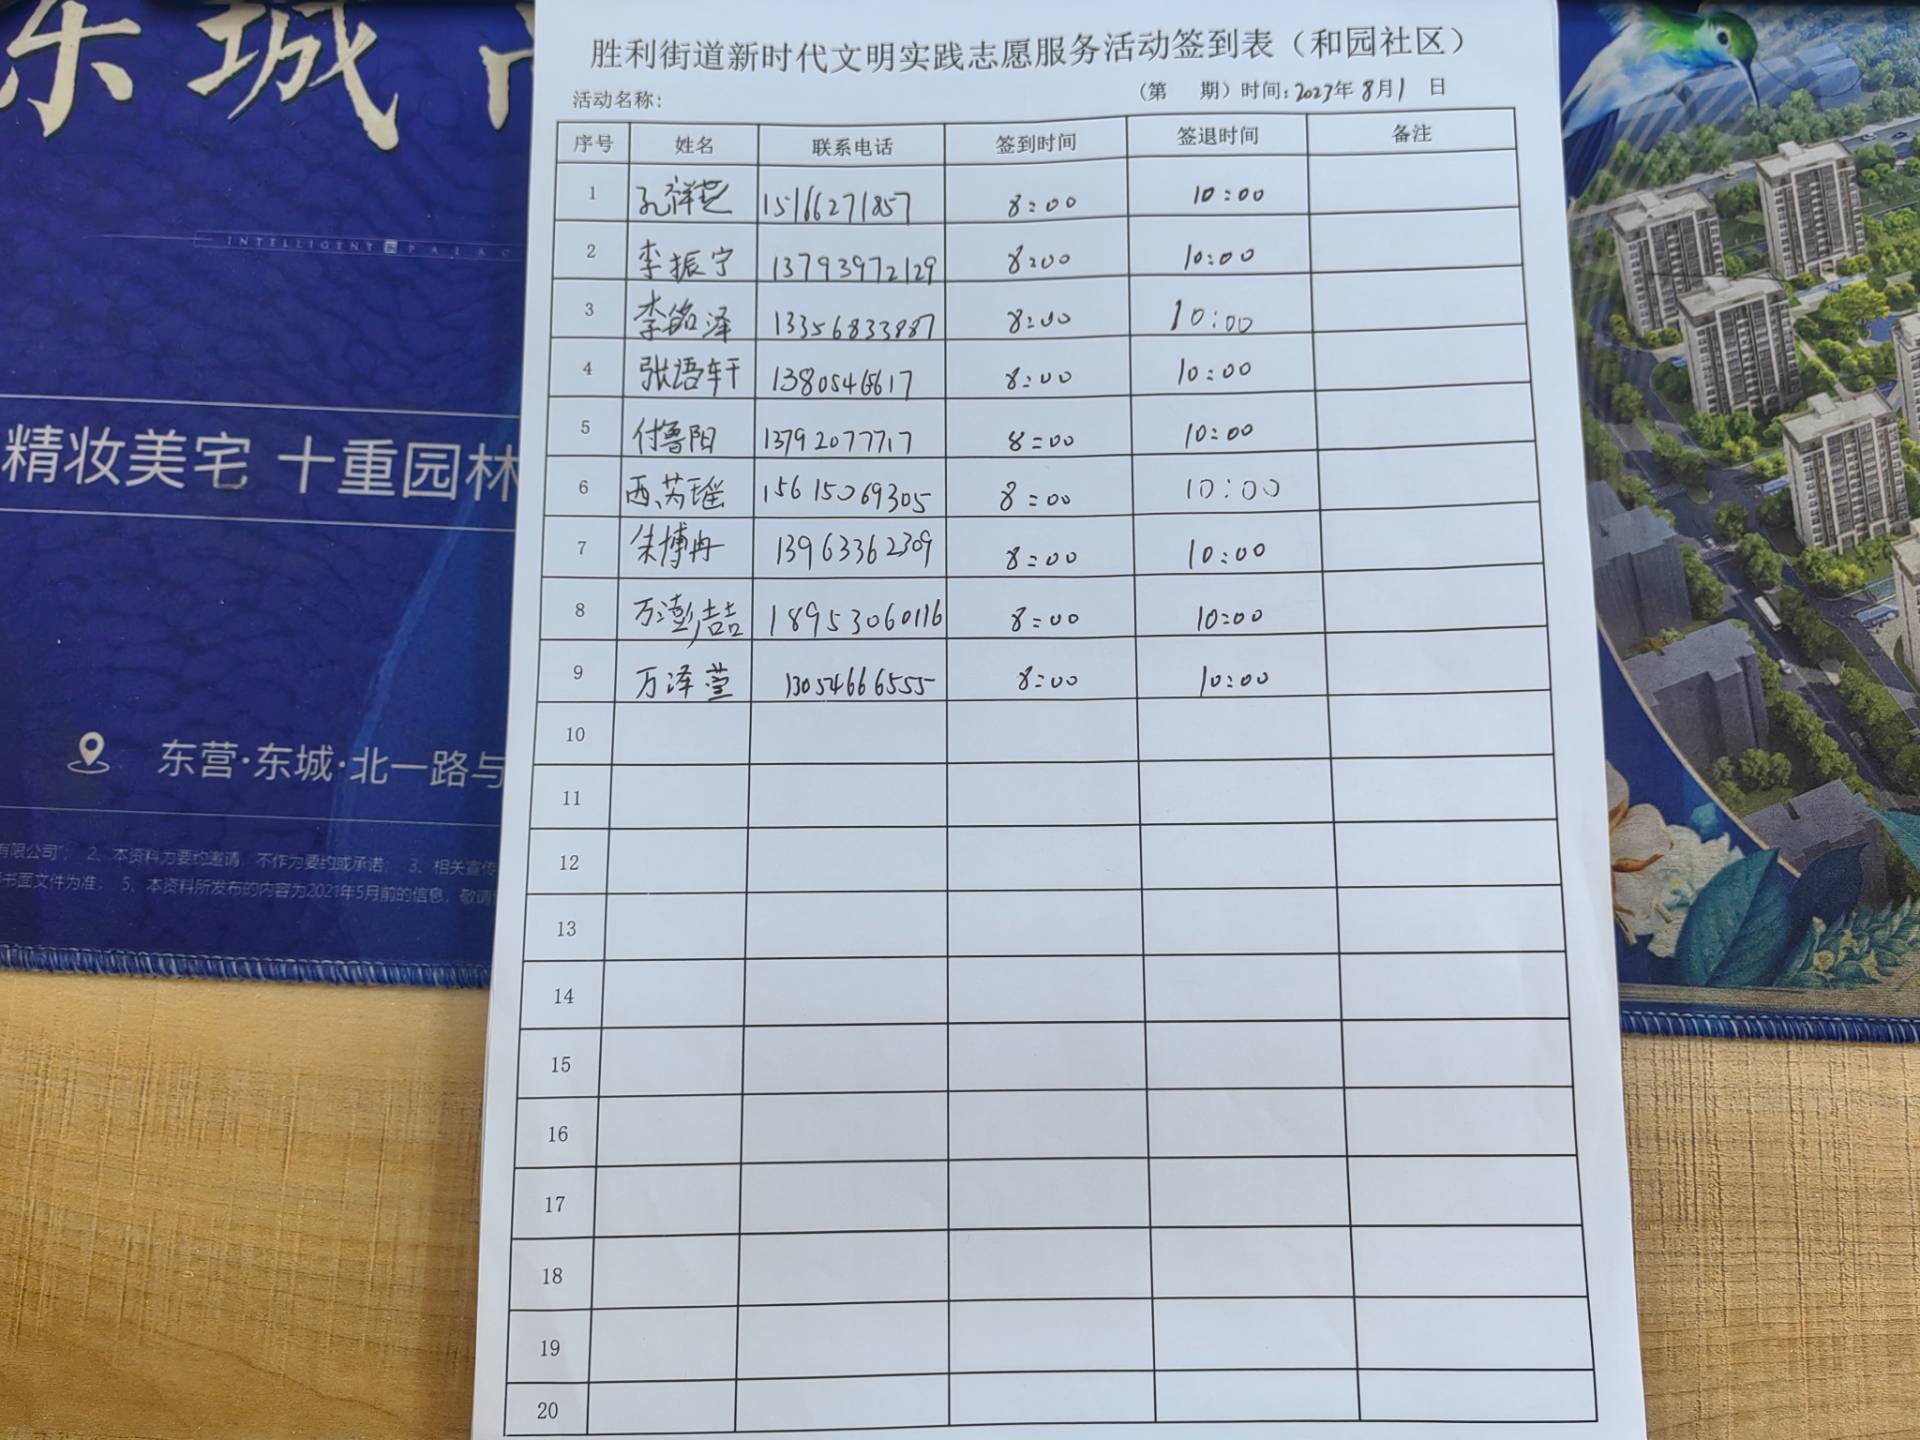 东城
INTELLIGENT 和 PALAC
精妆美宅 十重园林
东营·东城·北一路与
有限公司”； 2、本资料为要约邀请，不作为要约或承诺； 3、相关宣传
书面文件为准； 5、本资料所发布的内容为2021年5月前的信息，敬请
胜利街道新时代文明实践志愿服务活动签到表（和园社区）
活动名称： （第 期）时间：2023年 8月1 日
序号 姓名 联系电话 签到时间 签退时间 备注
1 孔祥芝 15166271857 8:00 10:00
2 李振宁 13793972129 8:00 10:00
3 李铭泽 13356833887 8:00 10:00
4 张语轩 8:00 10:00
5 付鲁阳 13792077717 8:00 10:00
6 西芮瑶 15615069305 8:00 10:00
7 朱博冉 13963362309 8:00 10:00
8 万澎喆 18953060116 8:00 10:00
9 万泽萱 13054666555 8:00 10:00
10
11
12
13
14
15
16
17
18
19
20